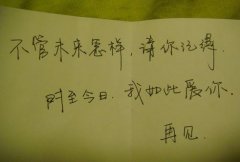 不管未来怎样，请你记得，
时至今日，我如此爱你，
再见.